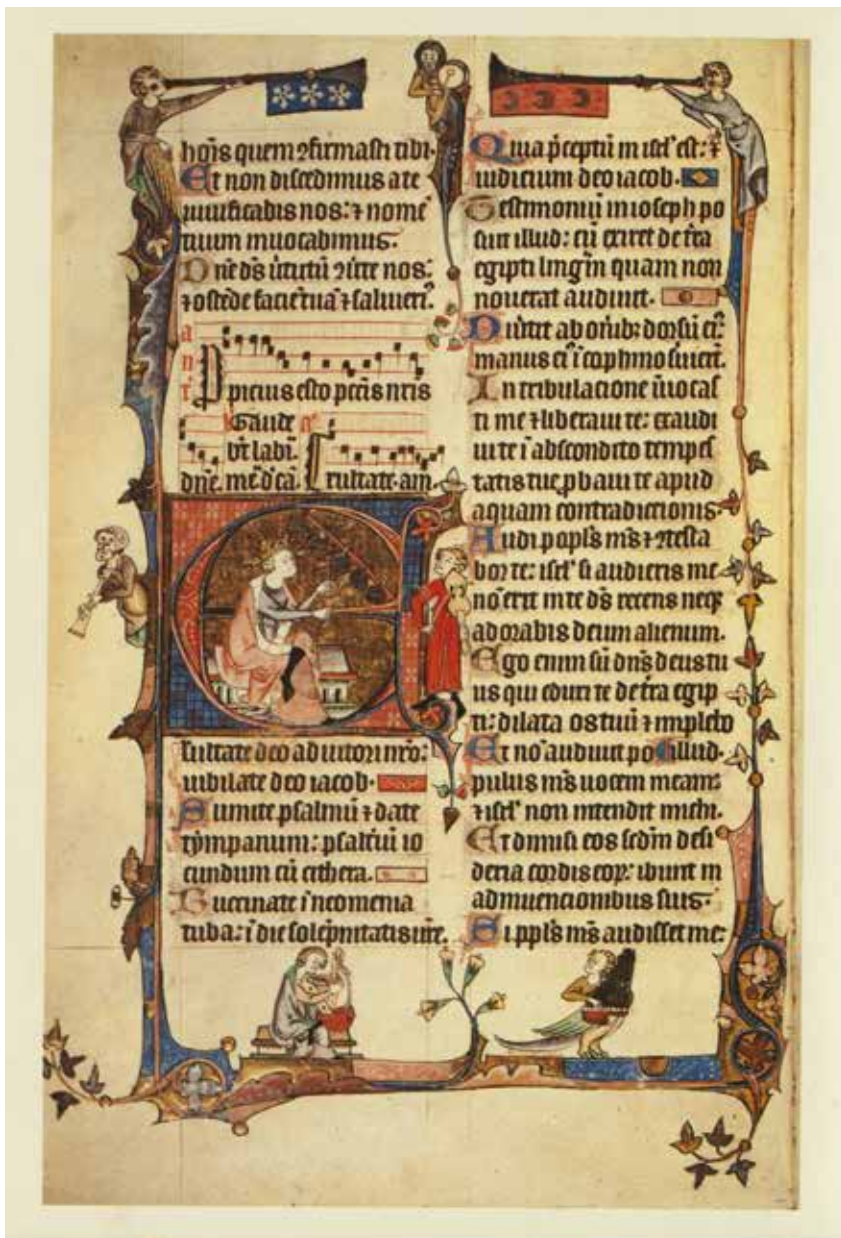 hoı̅s quem ꝯfirmasti tibi·
Et non discedimus a te
uiuificabis nos: ⁊ nome̅
tuum inuocabimus·
Dn̅e ds̅ u̅tutu̅ ꝯu̅te nos:
⁊ oste̅de facie̅ tua̅ ⁊ salui eri᷒.
an̅t
Ppicius esto pcc̅is nr̅is
Gaude a̅
bt̅ labi̅.
dn̅e. me̅ d̅ca̅. Exultate. am̅.
E
xultate deo adiutori nr̅o:
iubilate deo iacob·
Sumite psalmu̅ ⁊ date
tympanum: psalt̅iu̅ io
cundum cu̅ cithera.
Buccinate i̅ neomenia
tuba: i̅ die sole̅pnitatis ur̅e.
Quia p̅ceptu̅ in isrl̅ est: ⁊
iudicium deo iacob.
Testimoniu̅ in ioseph po
suit illud: cu̅ exiret de t̅ra
egipti lingu̅a quam non
nouerat audiuit.
Diu̅tit ab on̅ib: dorsu̅ ei᷒:
manus ei᷒ i̅ cophino s̅uier̅t.
In tribulacione i̅uocas
ti me ⁊ liberaui te: exaudi
ui te i̅ abscondito tempes
tatis tue ꝓbaui te apud
aquam contradictionis·
Audi popl̅s m̅s ⁊ ꝯtesta
bor te: isrl̅ si audieris me
no̅ erit in te ds̅ recens neqꝫ
adorabis deum alienum.
Ego enim su̅ dn̅s deus tu
us qui eduxi te de t̅ra egip
ti: dilata os tuu̅ ⁊ implebo
Et no̅ audiuit po illud·
pulus m̅s uocem meam:
⁊ isrl̅ non intendit michi.
Et dimisi eos sed̅m desi
deria cordis eoꝝ: ibunt in
adinuencionibus suis·
Si ppl̅s m̅s audisset me: